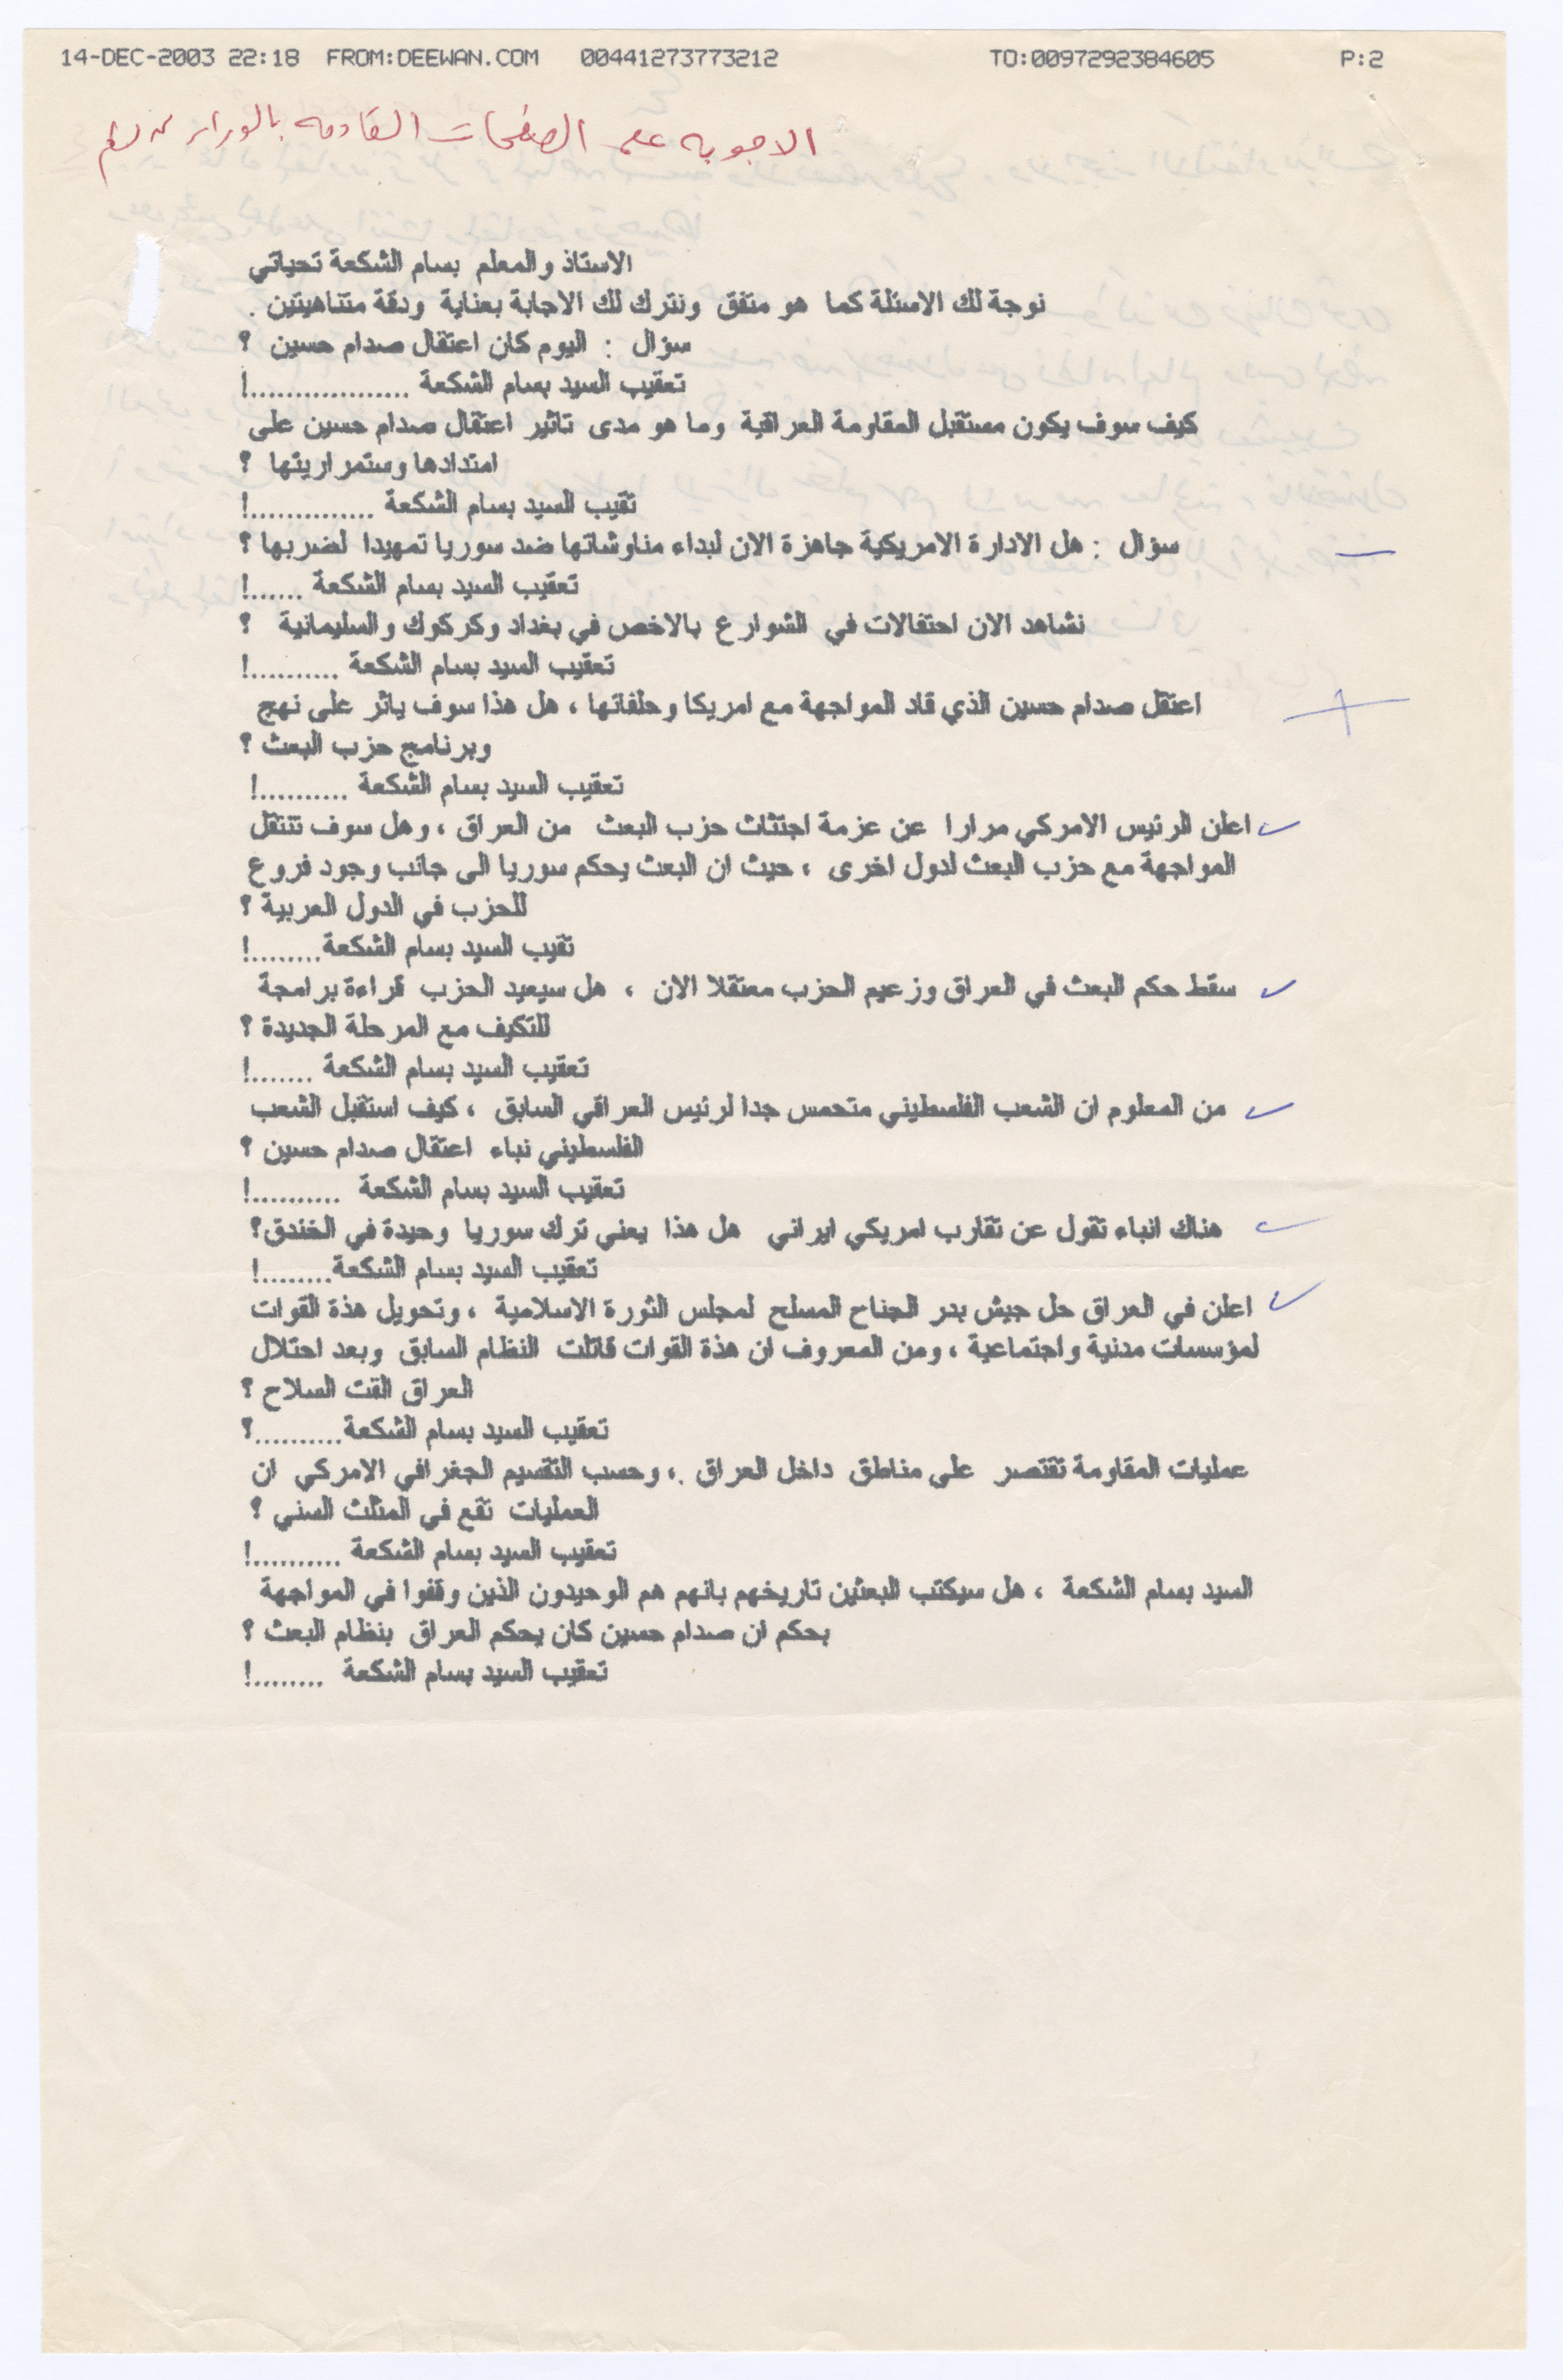 14-DEC-2003 22:18 FROM:DEEWAN.COM 00441273773212 TO:0097292384605 P:2
الاجوبه على الصفحات القادمه بالوراء
الاستاذ والمعلم بسام الشكعة تحياتي
نوجة لك الاسئلة كما هو متفق ونترك لك الاجابة بعناية ودقة متناهيتين .
سؤال : اليوم كان اعتقال صدام حسين ؟
تعقيب السيد بسام الشكعة ...................!
كيف سوف يكون مستقبل المقاومة العراقية وما هو مدى تاثير اعتقال صدام حسين على
امتدادها وستمراريتها ؟
تقيب السيد بسام الشكعة ..............!
سؤال : هل الادارة الامريكية جاهزة الان لبداء مناوشاتها ضد سوريا تمهيدا لضربها ؟
تعقيب السيد بسام الشكعة ......!
نشاهد الان احتفالات في الشوارع بالاخص في بغداد وكركوك والسليمانية ؟
تعقيب السيد بسام الشكعة ..........!
اعتقل صدام حسين الذي قاد المواجهة مع امريكا وحلفائها ، هل هذا سوف ياثر على نهج
وبرنامج حزب البعث ؟
تعقيب السيد بسام الشكعة ..........!
اعلن الرئيس الامركي مرارا عن عزمة اجتثاث حزب البعث من العراق ، وهل سوف تنتقل
المواجهة مع حزب البعث لدول اخرى ، حيث ان البعث يحكم سوريا الى جانب وجود فروع
للحزب في الدول العربية ؟
تقيب السيد بسام الشكعة........!
سقط حكم البعث في العراق وزعيم الحزب معتقلا الان ، هل سيعيد الحزب قراءة برامجة
للتكيف مع المرحلة الجديدة ؟
تعقيب السيد بسام الشكعة .......!
من المعلوم ان الشعب الفلسطيني متحمس جدا لرئيس العراقي السابق ، كيف استقبل الشعب
الفلسطيني نباء اعتقال صدام حسين ؟
تعقيب السيد بسام الشكعة ..........!
هناك انباء تقول عن تقارب امريكي ايراني هل هذا يعني ترك سوريا وحيدة في الخندق؟
تعقيب السيد بسام الشكعة........!
اعلن في العراق حل جيش بدر الجناح المسلح لمجلس الثورة الاسلامية ، وتحويل هذة القوات
لمؤسسات مدنية واجتماعية ، ومن المعروف ان هذة القوات قاتلت النظام السابق وبعد احتلال
العراق القت السلاح ؟
تعقيب السيد بسام الشكعة..........؟
عمليات المقاومة تقتصر على مناطق داخل العراق .، وحسب التقسيم الجغرافي الامركي ان
العمليات تقع في المثلث السني ؟
تعقيب السيد بسام الشكعة ..........!
السيد بسام الشكعة ، هل سيكتب البعثين تاريخهم بانهم هم الوحيدون الذين وقفوا في المواجهة
بحكم ان صدام حسين كان يحكم العراق بنظام البعث ؟
تعقيب السيد بسام الشكعة ........!